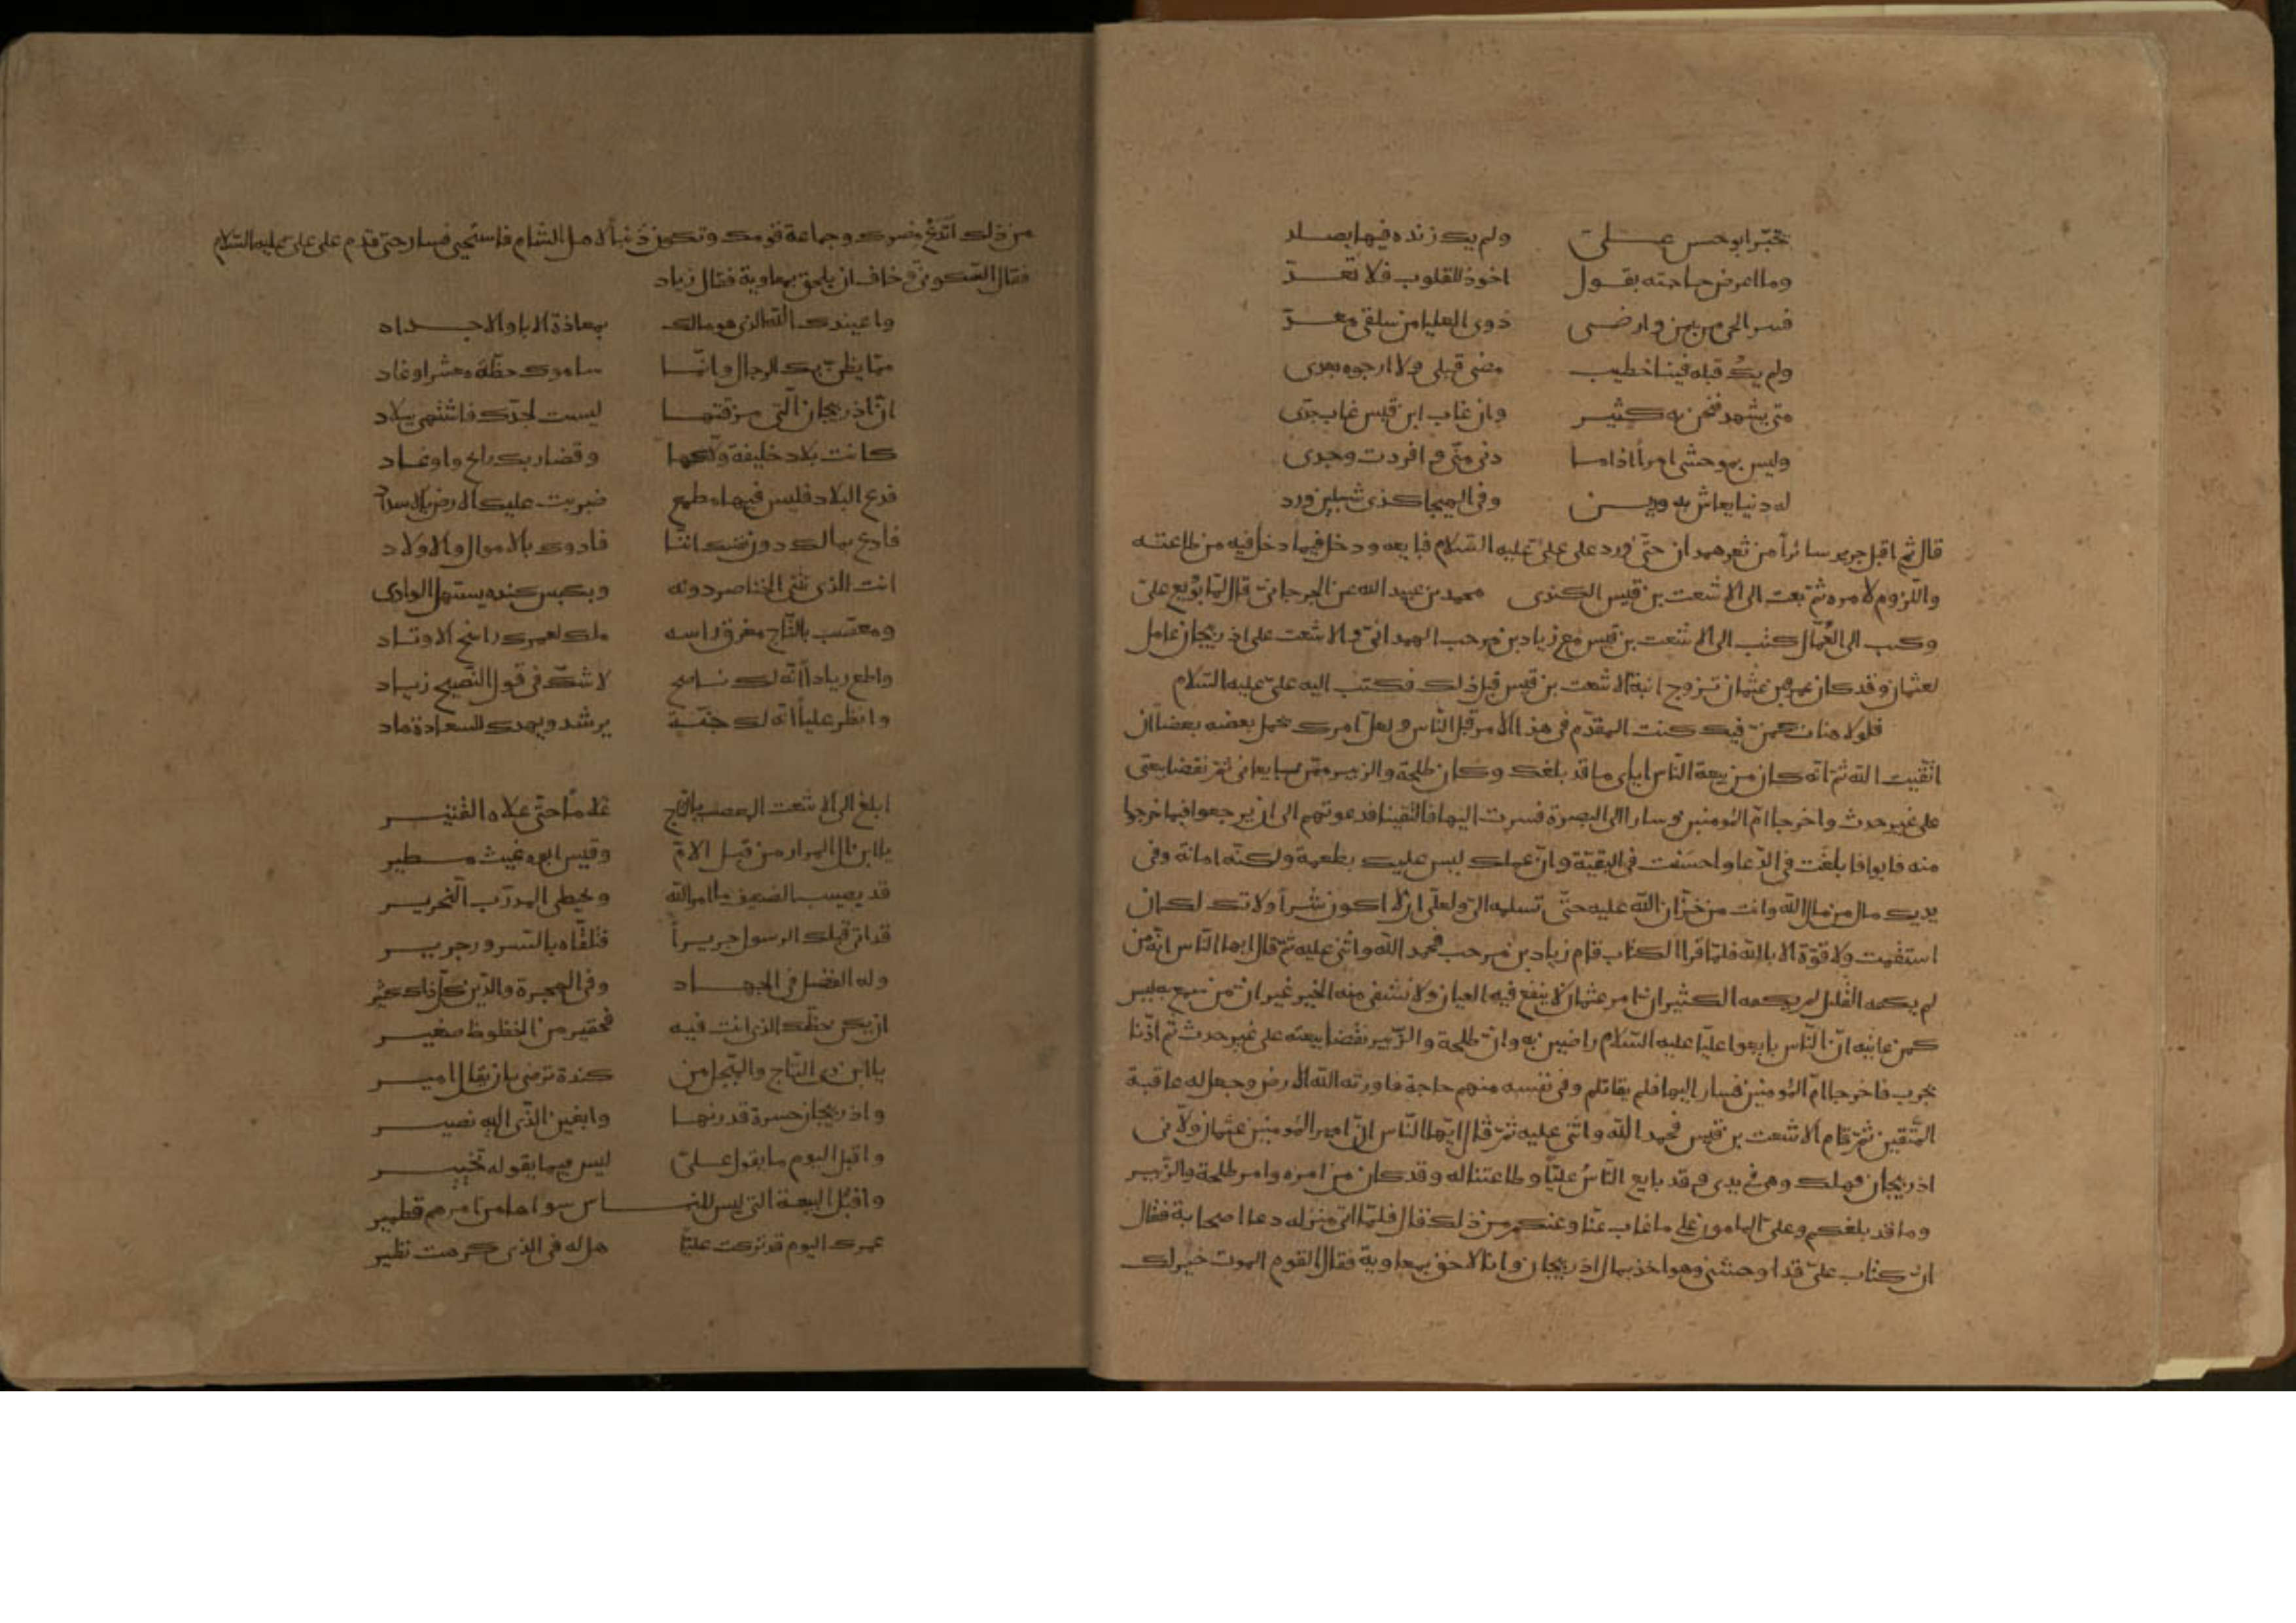 تخبر ابو حسن علي ولم يك زنده فيها بصلد
وما اعرض حاجته بقول اخوذ للقلوب فلا تعد
فسر الحي من يمن وارضى ذوي العليا من سلفي معد
ولم يك قبله فينا خطيب مضى قبلي ولا ارجوه بعدي
متى يشهد فنحن به كثير وان غاب ابن قيس غاب جدي
وليس بموحشي امرأ اذا ما دنى مني وافردت وحدي
له دنيا يعاش به ودين وفي الهيجا كذي شبلين ورد
قال ثم اقبل جرير سائراً من ثغر همدان حتى ورد على علي عليه السلام فبايعه ودخل فيما دخل فيه من طاعته
واللزوم لامره ثم بعث الى الاشعث بن قيس الكندي محمد بن عبيد الله عن الجرجاني قال لما بويع علي
وكتب الى العمال كتب الى الاشعث بن قيس مع زياد بن مرحب الهمداني والاشعث على اذربيجان عامل
لعثمان وقد كان عمرو بن عثمان تزوج ابنة الاشعث بن قيس قبل ذلك فكتب اليه علي عليه السلام
فلولا هنات كمن فيك كنت المقدم في هذا الامر قبل الناس ولعل امرك يحمل بعضه بعضاً ان
اتقيت الله ثم انه كان من بيعة الناس اياي ما قد بلغك وكان طلحة والزبير ممن بايعاني ثم نقضا بيعتي
على غير حدث واخرجا ام المؤمنين وسارا الى البصرة فسرت اليها فالتقينا فدعوتهم الى ان يرجعوا فيما خرجوا
منه فابوا فابلغت في الدعا واحسنت في البقية وان عملك ليس عليك بطعمة ولكنه امانة وفي
يديك مال من مال الله وانت من خزان الله عليه حتى تسلمه الي ولعلي ان لا اكون شراً ولاتك لك ان
استقمت ولا قوة الا بالله فلما قرا الكتاب قام زياد بن مرحب فحمد الله واثنى عليه ثم قال ايها الناس انه من
لم يكفه القليل لم يكفه الكثير ان امر عثمان لا ينفع فيه العيان ولا يشفى منه الخبر غير ان من سمع به ليس
كمن عاينه ان الناس بايعوا علياً عليه السلام راضين به وان طلحة والزبير نقضا بيعته على غير حدث ثم اذنا
بحرب فاخرجا ام المؤمنين فسار اليها فلم يقاتلم وفي نفسه منهم حاجة فاورثه الله الارض وجعل له عاقبة
المتقين ثم قام الاشعث بن قيس فحمد الله واثنى عليه ثم قال ايها الناس ان امير المؤمنين عثمان ولاني
اذربيجان فهلك وهي في يدي وقد بايع الناس علياً وطاعتنا له وقد كان من امره وامر طلحة والزبير
وما قد بلغكم وعلي المامون على ما غاب عنا وعنكم من ذلك قال فلما اتى منزله دعا اصحابه فقال
ان كتاب علي قد اوحشني وهو اخذ بمال اذربيجان وانا لاحق بمعاوية فقال القوم الموت خير لك
من ذلك اتدع مصرك وجماعة قومك وتكون ذنباً لاهل الشام فاستحيى فسار حتى قدم على علي عليه السلام
فقال السكوني وخاف ان يلحق بمعاوية فقال زياد
واعيذك بالله الذي هو مالك بمعاذة الابا والاجداد
مما يظن بك الرجال وانما ساموك خطة معشر اوغاد
ان اذربيجان التي مزقتها ليست لجدك فاشنئها ببلاد
كانت بلاد خليفة ولاكها وقضا ربك رايح واوغاد
فدع البلاد فليس فيها مطمع ضربت عليك الارض بالاسداد
فادع بمالك دون نفسك اننا فادوك بالاموال والاولاد
انت الذي تثنى الخناصر دونه وبكبس كندة يستهل الوادي
ومعصب بالتاج مفرق راسه ملك لعمرك راسخ الاوتاد
واطع زياداً انه لك ناصح لا شك في قول النصيح زياد
وانظر علياً انه لك جنة يرشد ويهدك للسعادة هاد
ابلغ الى الاشعث المعصب بالتاج غلاماً حتى علاه القتير
يابن ال المرار من قبل الام وقيس ابوه غيث مطير
قد يصيب الضعيف ما امر الله ويخطي المدرب النحرير
قد اتى قبلك الرسول جريراً فتلقاه بالسرور جرير
وله الفضل في الجهاد وفي الهجرة والدين كل ذاك كثير
ان يكن حظك الذي انت فيه فحقير من الحظوظ صغير
يا ابن ذي التاج والمبجل من كندة ترضى بان يقال امير
واذربيجان حسرة قدرنها وابغين الذي اليه تصير
واقبل اليوم ما يقول علي ليس فيما يقوله تخيير
واقبل البيعة التي ليس للناس سواها من امرهم قطمير
عمرك اليوم قد تركت علياً هل له في الذي كرهت نظير